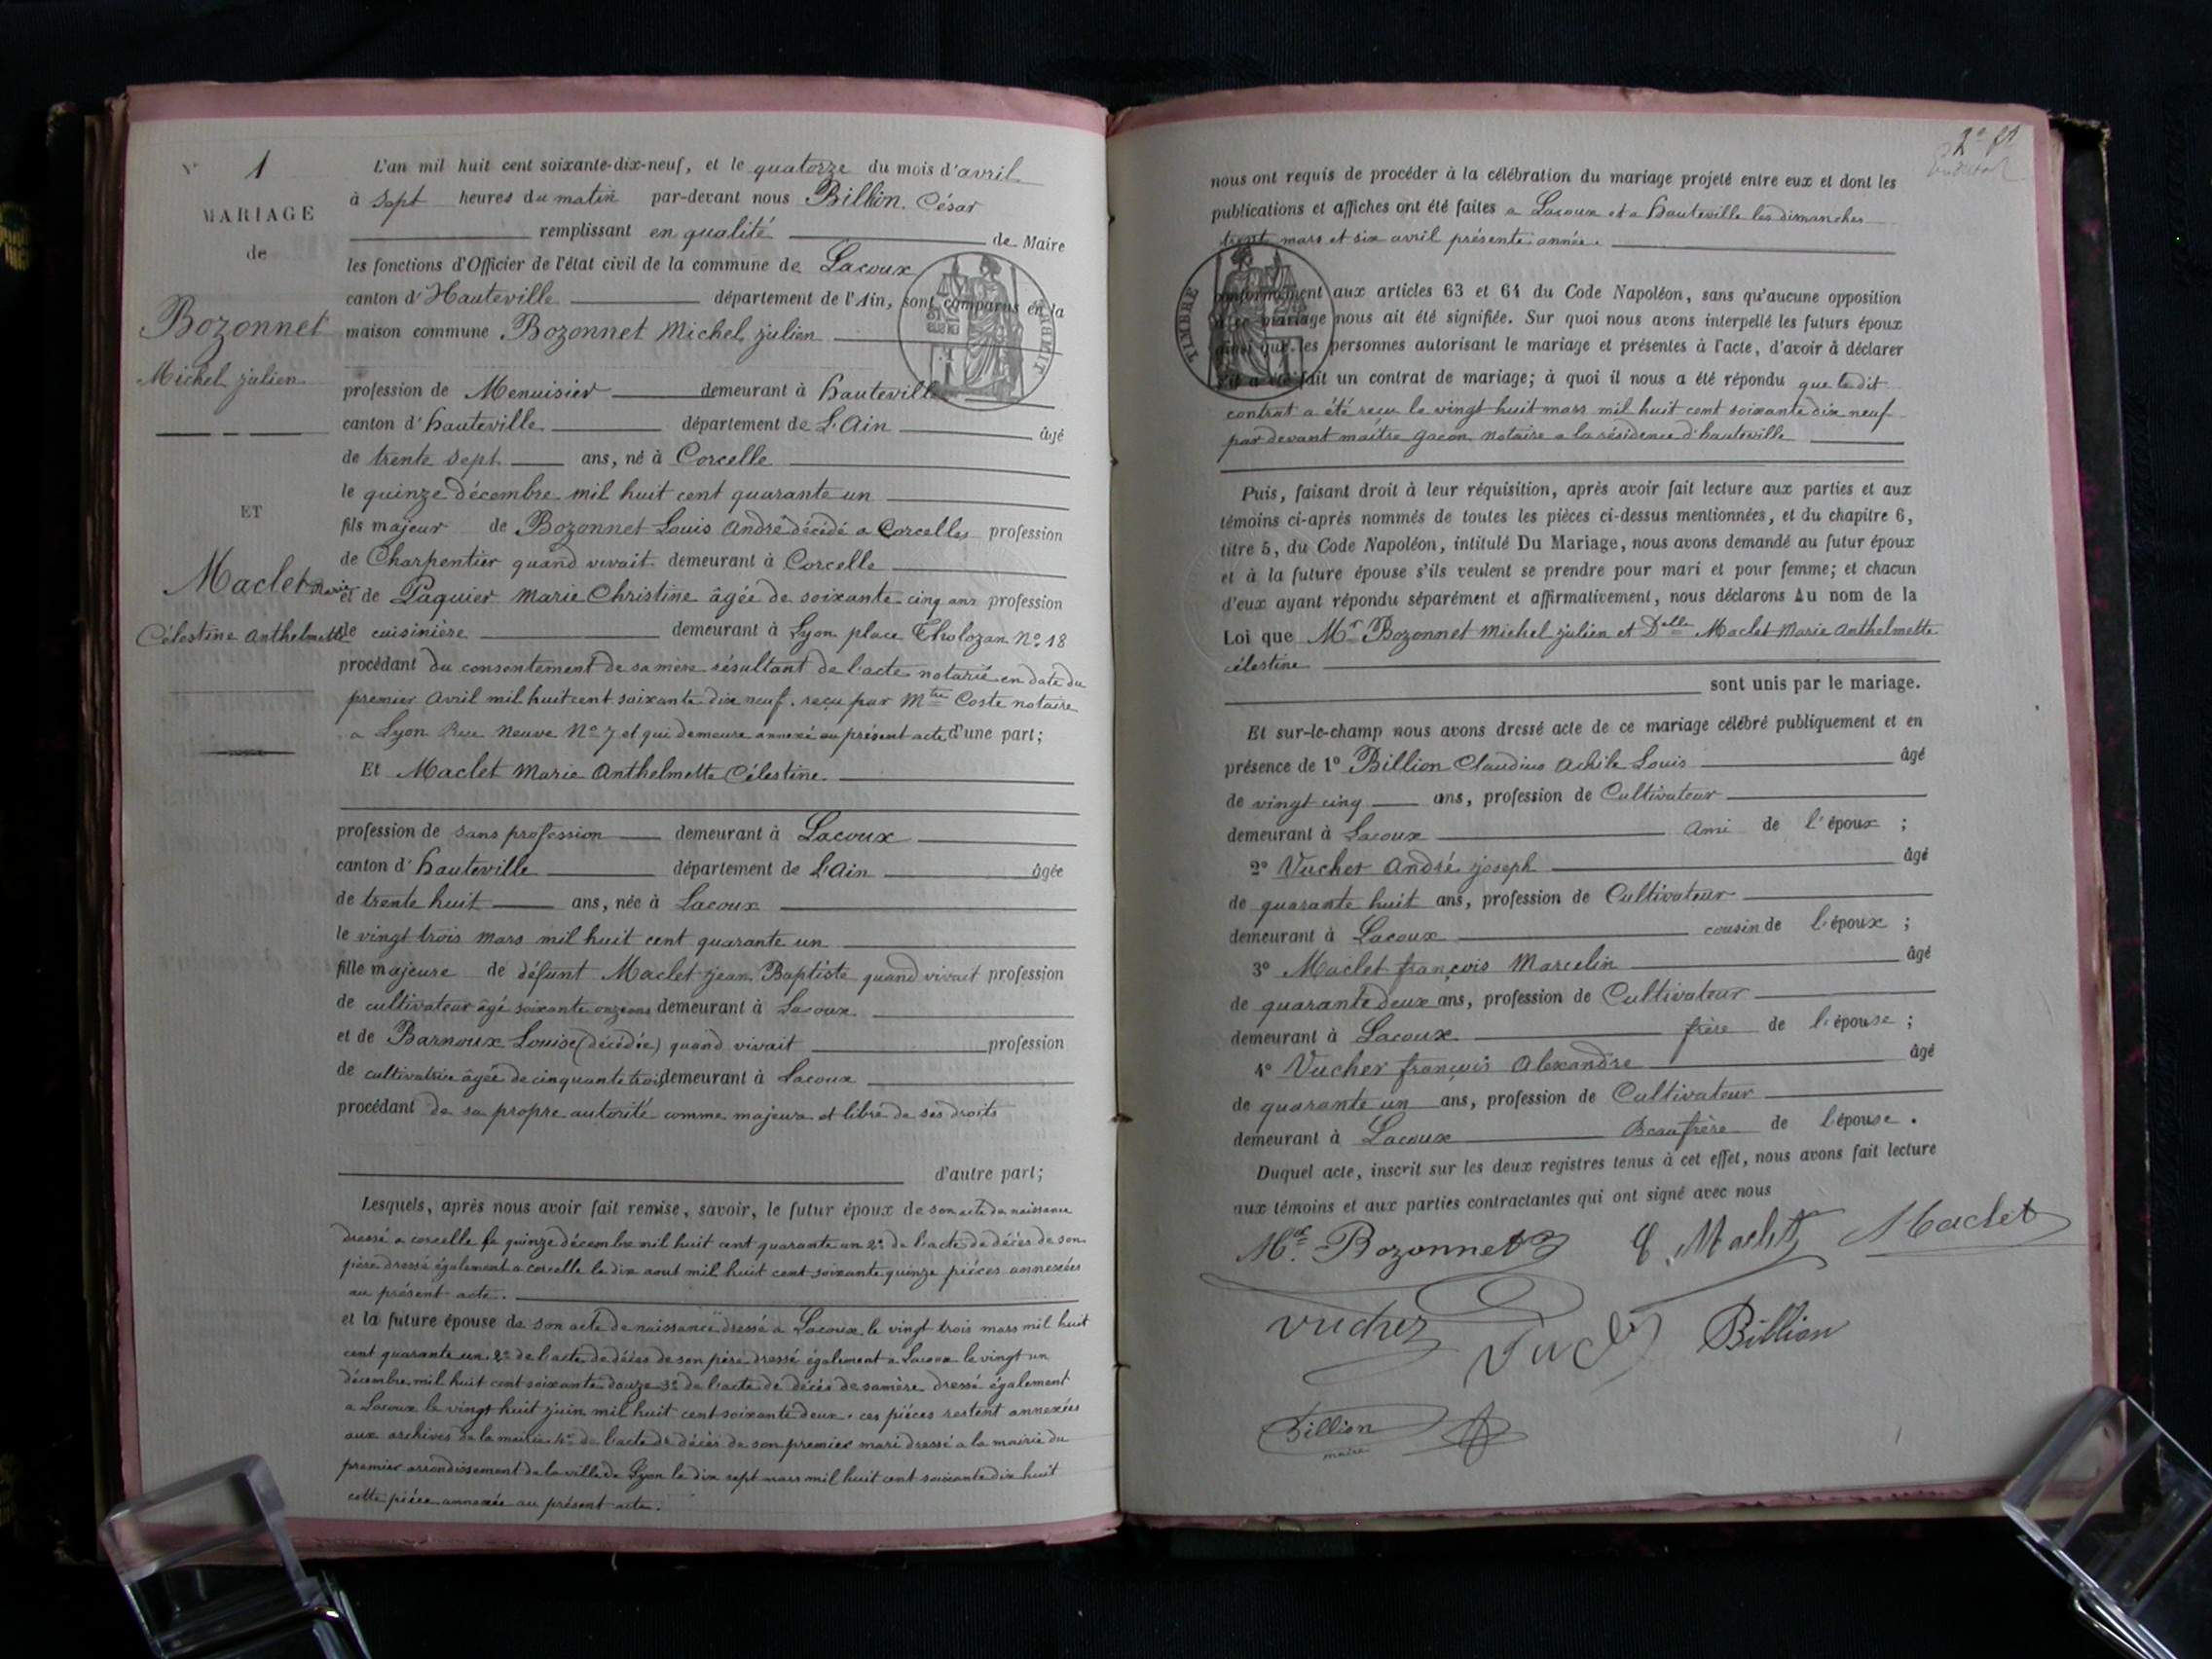 N° 1
MARIAGE
de
Bozonnet
Michel julien
ET
Maclet Marie
Célestine Anthelmette
L'an mil huit cent soixante-dix-neuf, et le quatorze du mois d'avril
à sept heures du matin par-devant nous Billion César
remplissant en qualité de Maire
les fonctions d'Officier de l'état civil de la commune de Lacoux
canton d'Hauteville département de l'Ain, sont comparus en la
maison commune Bozonnet Michel julien
profession de Menuisier demeurant à hauteville
canton d'hauteville département de L'Ain âgé
de trente sept ans, né à Corcelle
le quinze décembre mil huit cent quarante un
fils majeur de Bozonnet Louis André décédé a Corcelles profession
de Charpentier quand vivait demeurant à Corcelle
et de Paquier Marie Christine âgée de soixante cinq ans profession
de cuisinière demeurant à Lyon place Tholozan N° 18
procédant du consentement de sa mère résultant de l'acte notarié en date du
premier Avril mil huit cent soixante dix neuf reçu par Mtre Coste notaire
a Lyon Rue Neuve N° 7 et qui demeure annexé au présent acte d'une part;
Et Maclet Marie Anthelmette Célestine
profession de sans profession demeurant à Lacoux
canton d'hauteville département de L'Ain âgée
de trente huit ans, née à Lacoux
le vingt trois mars mil huit cent quarante un
fille majeure de défunt Maclet jean Baptiste quand vivait profession
de cultivateur âgé soixante onze ans demeurant à Lacoux
et de Barnoux Louise (décédée) quand vivait profession
de cultivatrice âgée de cinquante trois demeurant à Lacoux
procédant de sa propre autorité comme majeure et libre de ses droits
d'autre part;
Lesquels, après nous avoir fait remise, savoir, le futur époux de son acte de naissance
dressé a corcelle le quinze décembre mil huit cent quarante un 2° de l'acte de décès de son
père dressé également a corcelle le dix aout mil huit cent soixante quinze pièces annexées
au présent acte.
et la future épouse de son acte de naissance dressé a Lacoux le vingt trois mars mil huit
cent quarante un 2° de l'acte de décès de son père dressé également a Lacoux le vingt un
décembre mil huit cent soixante douze 3° de l'acte de décès de sa mère dressé également
a Lacoux le vingt huit juin mil huit cent soixante deux. ces pièces restent annexées
aux archives de la mairie 4° de l'acte de décès de son premier mari dressé a la mairie du
premier arrondissement de la ville de Lyon le dix sept mars mil huit cent soixante dix huit
cette pièce annexée au présent acte.
nous ont requis de procéder à la célébration du mariage projeté entre eux et dont les
publications et affiches ont été faites a Lacoux et a hauteville les dimanches
trente mars et six avril présente année.
TIMBRE
conformément aux articles 63 et 64 du Code Napoléon, sans qu'aucune opposition
à ce mariage nous ait été signifiée. Sur quoi nous avons interpellé les futurs époux
ainsi que les personnes autorisant le mariage et présentes à l'acte, d'avoir à déclarer
s'il a été fait un contrat de mariage; à quoi il nous a été répondu que le dit
contrat a été reçu le vingt huit mars mil huit cent soixante dix neuf
par devant maître Gacon notaire a la résidence d'hauteville
Puis, faisant droit à leur réquisition, après avoir fait lecture aux parties et aux
témoins ci-après nommés de toutes les pièces ci-dessus mentionnées, et du chapitre 6,
titre 5, du Code Napoléon, intitulé Du Mariage, nous avons demandé au futur époux
et à la future épouse s'ils veulent se prendre pour mari et pour femme; et chacun
d'eux ayant répondu séparément et affirmativement, nous déclarons Au nom de la
Loi que Mr Bozonnet Michel julien et Delle Maclet Marie Anthelmette
célestine
sont unis par le mariage.
Et sur-le-champ nous avons dressé acte de ce mariage célébré publiquement et en
présence de 1° Billion Claudius Achile Louis âgé
de vingt cinq ans, profession de Cultivateur
demeurant à Lacoux Ami de l'époux ;
2° Vucher André joseph âgé
de quarante huit ans, profession de Cultivateur
demeurant à Lacoux cousin de l'époux ;
3° Maclet françois Marcelin âgé
de quarante deux ans, profession de Cultivateur
demeurant à Lacoux frère de l'épouse ;
4° Vucher françois Alexandre âgé
de quarante un ans, profession de Cultivateur
demeurant à Lacoux Beau frère de l'épouse .
Duquel acte, inscrit sur les deux registres tenus à cet effet, nous avons fait lecture
aux témoins et aux parties contractantes qui ont signé avec nous
Mel Bozonnet C. Maclet Maclet
Vucher Billion
Billion
maire